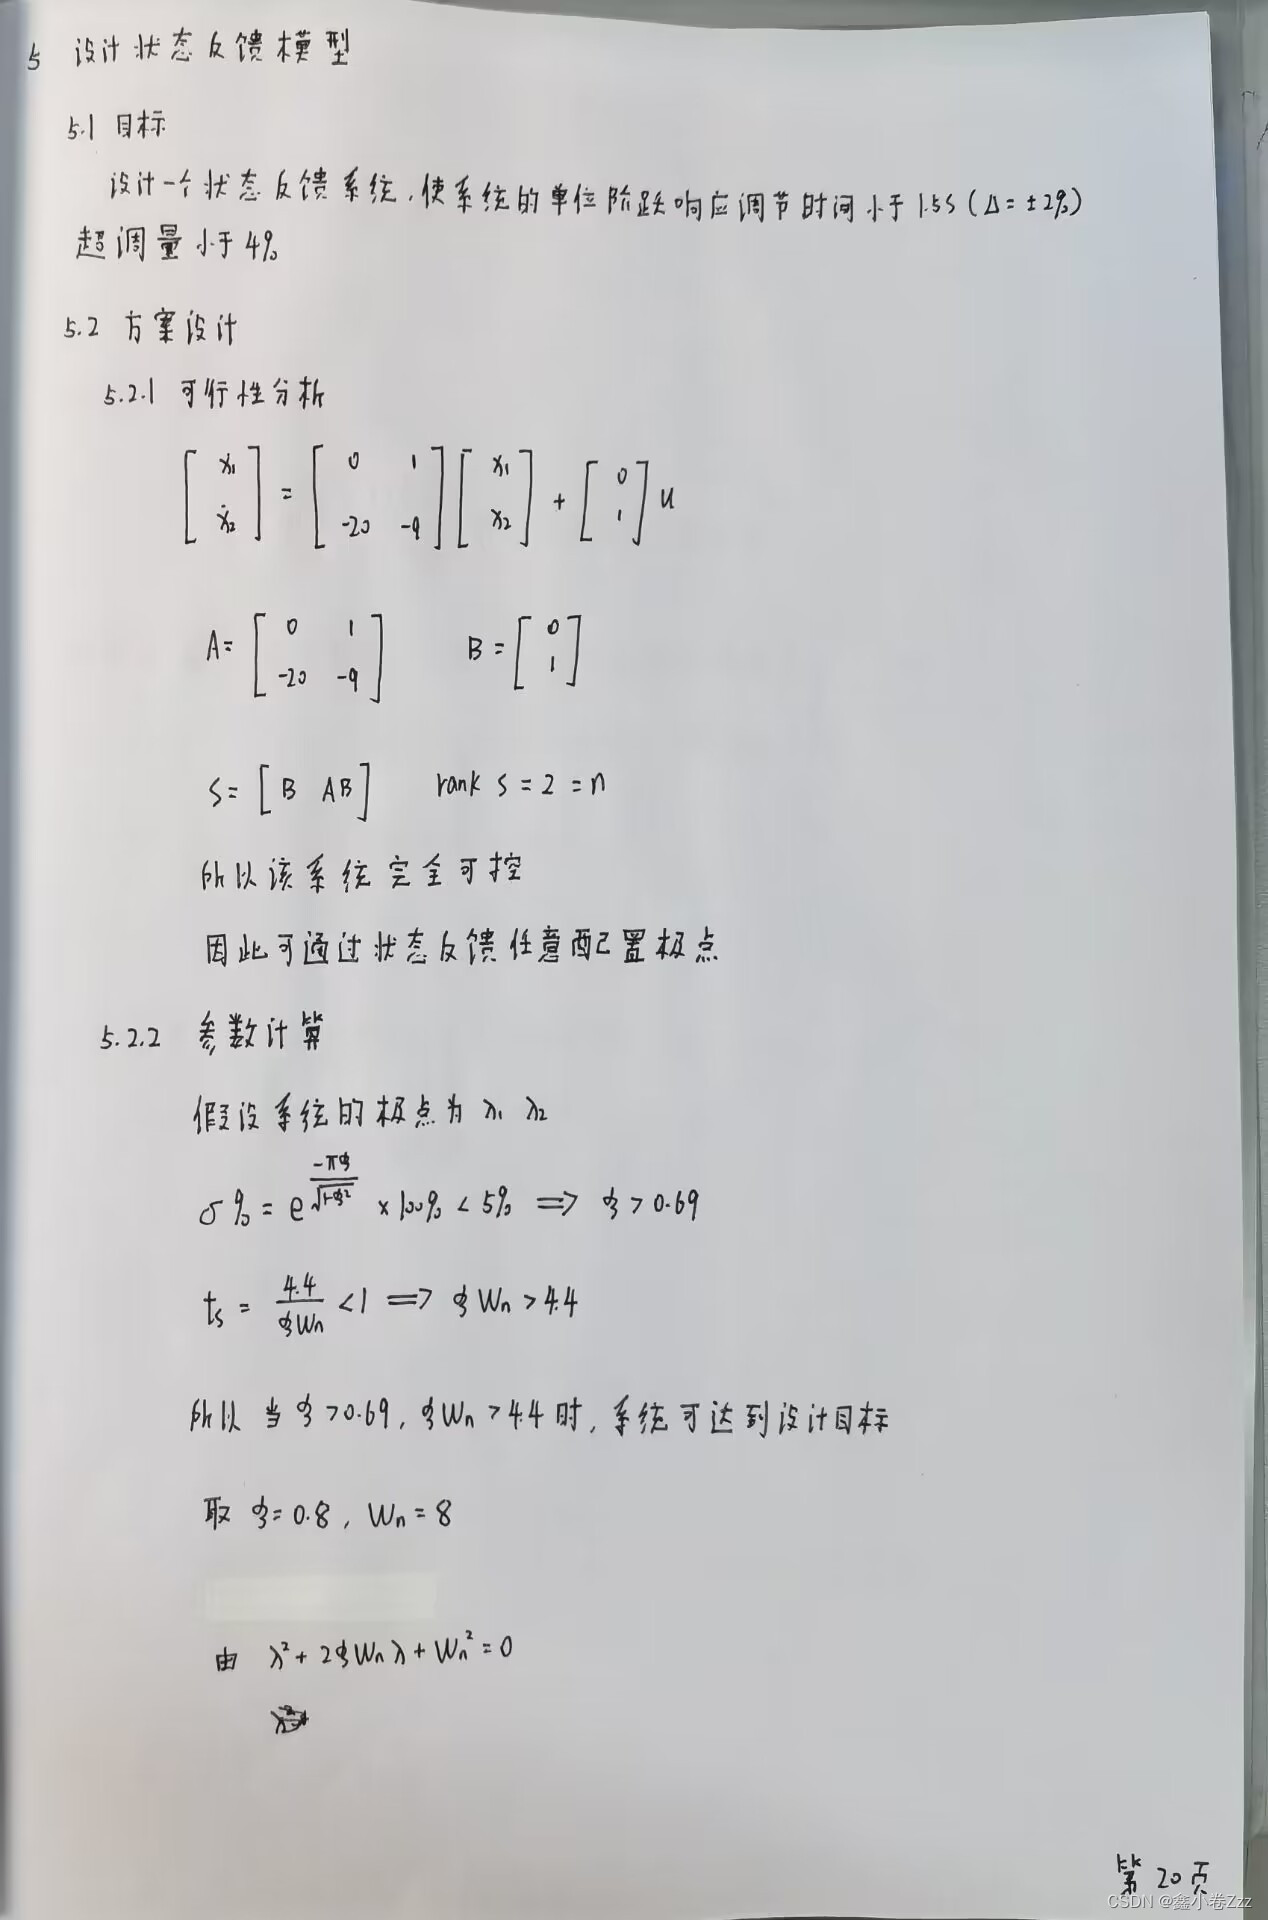 5 设计状态反馈模型
5.1 目标
设计一个状态反馈系统,使系统的单位阶跃响应调节时间小于1.5S(Δ=±2%)
超调量小于4%
5.2 方案设计
5.2.1 可行性分析
[ẋ₁ ẋ₂] = [0 1 -20 -9] [x₁ x₂] + [0 1] u
A= [0 1 -20 -9] B= [0 1]
S= [B AB] rank S = 2 = n
所以该系统完全可控
因此可通过状态反馈任意配置极点
5.2.2 参数计算
假设系统的极点为 λ₁ λ₂
σ% = e^(-πξ/√(1-ξ²)) ×100% < 5% ⟹ ξ > 0.69
ts = 4.4/(ξWn) < 1 ⟹ ξWn > 4.4
所以 当 ξ>0.69, ξWn >4.4 时, 系统可达到设计目标
取 ξ=0.8, Wn=8
由 λ²+2ξWnλ+Wn²=0
第20页
CSDN @鑫小卷Zzz